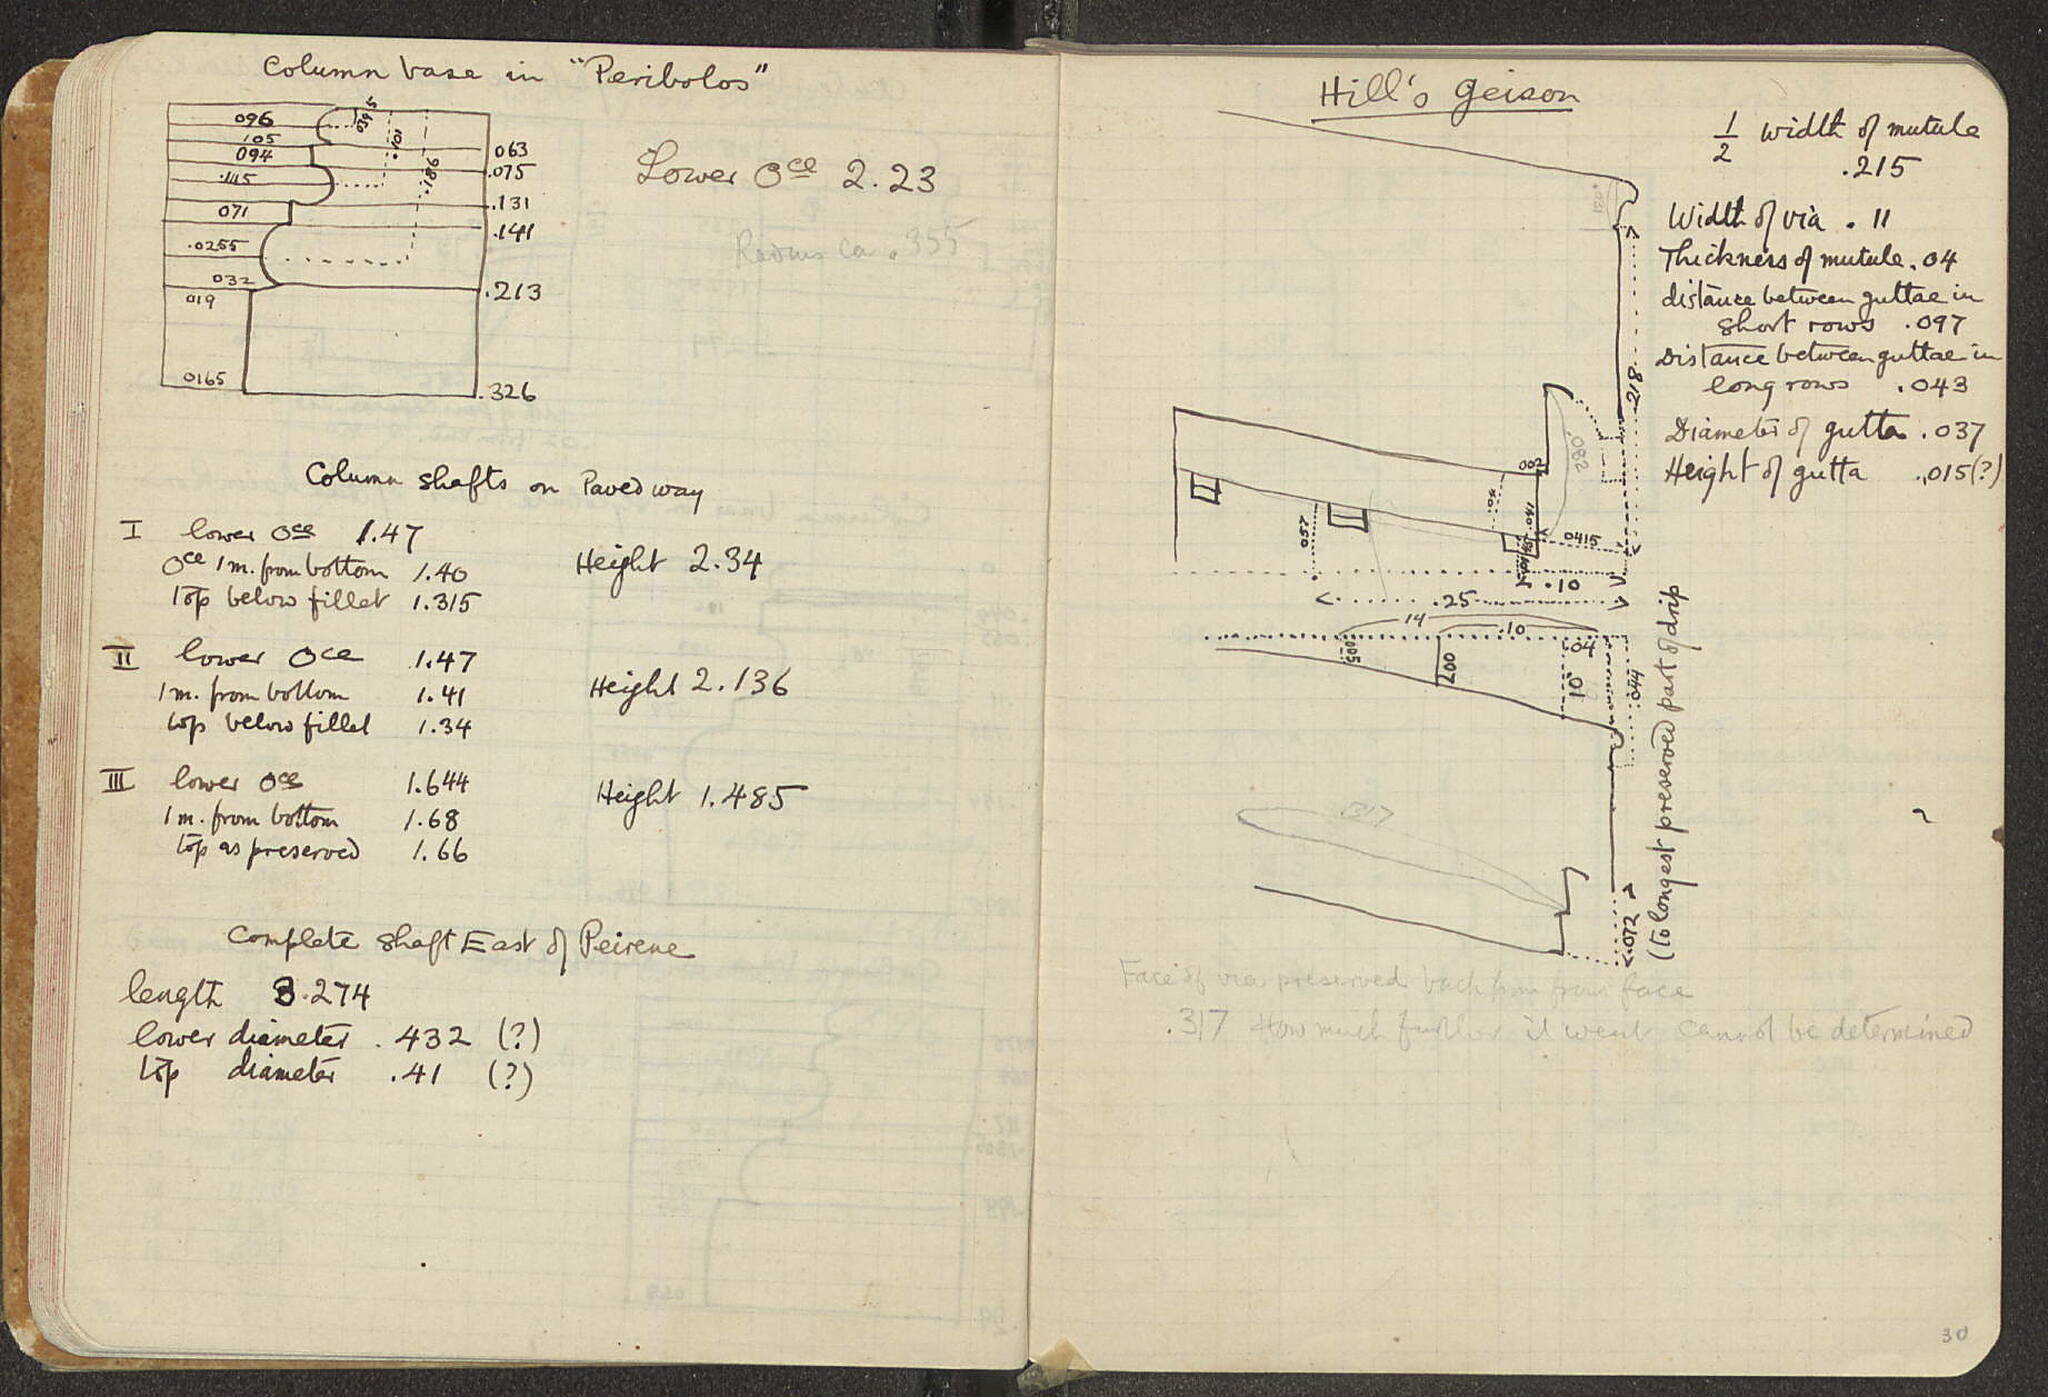 Column base in "Peribolos"
096
.105
094
.115
071
.0255
032
019
0165
.0395
.101
.186
063
.075
.131
.141
.213
.326
Lower Oce 2.23
Radius ca .355
Column shafts on Paved way
I lower Oce 1.47
Oce 1 m. from bottom 1.40
top below fillet 1.315
Height 2.34
II lower Oce 1.47
1 m. from bottom 1.41
top below fillet 1.34
Height 2.136
III lower Oce 1.644
1 m. from bottom 1.68
top as preserved 1.66
Height 1.485
Complete shaft East of Peirene
length 3.274
lower diameter .432 (?)
top diameter .41 (?)
Hill's Geison
1/2 width of mutule
.215
Width of via .11
Thickness of mutule .04
distance between guttae in
short rows .097
Distance between guttae in
long rows .043
Diameter of gutta .037
Height of gutta .015(?)
.031
.218
.082
002
.057
0415
.10
.25
14
.10
.04
.005
.007
.01
.044
.317
.072
(to longest preserved part of drip
Face of via preserved back from front face
.317 How much further it went cannot be determined
30